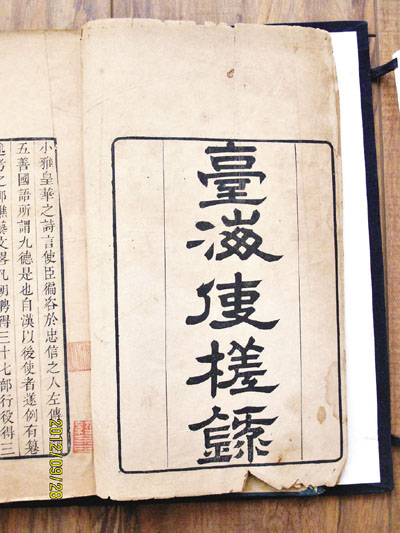 臺海使槎錄
小雅皇華之詩言使臣諮咨於忠信之人左傳
五善國語所謂九德是也自漢以後使者遂例有纂
之部 藝文畧凡朝聘得三十七部行役得三
2012/09/28